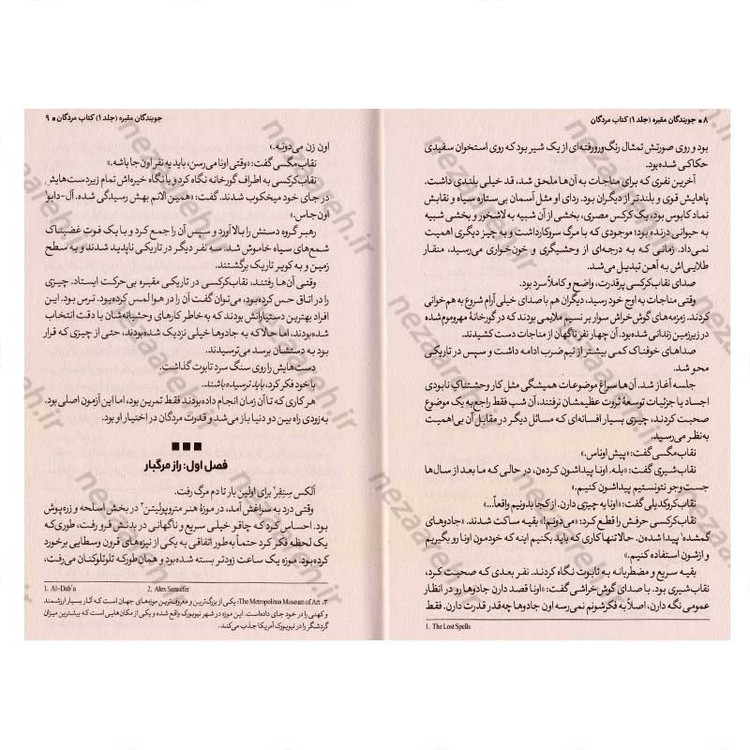 ۸ ■ جویندگان مقبره (جلد ۱) کتاب مردگان
بود و روی صورتش تمثال رنگ‌ورورفته‌ای از یک شیر بود که روی استخوان سفیدی
حکاکی شده‌بود.
آخرین نفری که برای مناجات به آن‌ها ملحق شد، قد خیلی بلندی داشت.
پاهایش قوی و بلندتر از دیگران بود. ردای او مثل آسمان بی‌ستاره سیاه و نقابش
نماد کابوس بود، یک کرکس مصری، بخشی از آن شبیه به لاشخور و بخشی شبیه
به حیوانی درنده بود؛ موجودی که با مرگ سروکار داشت و به چیز دیگری اهمیت
نمی‌داد. زمانی که به درجه‌ای از وحشیگری و خون‌خواری می‌رسید، منقار
طلایی‌اش به آهن تبدیل می‌شد.
صدای نقاب‌کرکسی پرقدرت، واضح و کاملاً سرد بود.
وقتی مناجات به اوج خود رسید، دیگران هم با صدای خیلی آرام شروع به هم‌خوانی
کردند. زمزمه‌های گوش‌خراش سوار بر نسیم ملایمی بودند که در گورخانهٔ مهروموم‌شده
در زیرزمین زندانی شده‌بود. آن چهار نفر ناگهان از مناجات دست کشیدند.
صداهای خوفناک کمی بیشتر از نیم ضرب ادامه داشت و سپس در تاریکی
محو شد.
جلسه آغاز شد. آن‌ها سراغ موضوعات همیشگی مثل کار وحشتناکِ نابودی
اجساد یا جزئیات توسعهٔ ثروت عظیمشان نرفتند، آن شب فقط راجع به یک موضوع
صحبت کردند، چیزی بسیار افسانه‌ای که مسائل دیگر در مقابل آن بی‌اهمیت
به‌نظر می‌رسید.
نقاب‌مگسی گفت: «پیش اوناس.»
نقاب‌شیری گفت: «بله. اونا پیداشون کردن، در حالی که ما بعد از سال‌ها
جست‌وجو نتونستیم پیداشون کنیم.»
نقاب‌کروکدیلی گفت: «اونا یه چیزی دارن. از کجا بدونیم واقعاً...»
نقاب‌کرکسی حرفش را قطع کرد: «می‌دونم!» بقیه ساکت شدند. «جادوهای
گمشده¹ پیدا شده‌ن. حالا تنها کاری که باید بکنیم اینه که خودمون اونا رو بگیریم
و ازشون استفاده کنیم.»
بقیه سریع و مضطربانه به تابوت نگاه کردند. نفر بعدی که صحبت کرد،
نقاب‌شیری بود. با صدای گوش‌خراشی گفت: «اونا قصد دارن جادوها رو در انظار
عمومی نگه دارن. اصلاً به فکرشونم نمی‌رسه اون جادوها چه‌قدر قدرت دارن. فقط
1. The Lost Spells
جویندگان مقبره (جلد ۱) کتاب مردگان ■ ۹
اون زن می‌دونه.»
نقاب‌مگسی گفت: «وقتی اونا می‌رسن، باید یه نفر اون جا باشه.»
نقاب‌کرکسی به اطراف گورخانه نگاه کرد و با نگاه خیره‌اش تمام زیردست‌هایش
در جای خود میخکوب شدند. گفت: «همین الانم بهش رسیدگی شده. آل-دابو¹
اون‌جاس.»
رهبر گروه دستش را بالا آورد و سپس آن را جمع کرد و با یک فوت غضبناک
شمع‌های سیاه خاموش شد. سه نفر دیگر در تاریکی ناپدید شدند و به سطح
زمین و به کویر تاریک برگشتند.
وقتی آن‌ها رفتند، نقاب‌کرکسی در تاریکی مقبره بی‌حرکت ایستاد. چیزی
را در اتاق حس کرده‌بود، می‌توان گفت آن را در هوا لمس کرده‌بود. ترس بود. این
افراد بهترین دستیارانش بودند که به خاطر کارهای وحشیانه‌شان با دقت انتخاب
شده‌بودند، اما حالا که به جادوها خیلی نزدیک شده‌بودند، حتی از چیزی که قرار
بود به دستشان برسد می‌ترسیدند.
دست‌هایش را روی سنگ سرد تابوت گذاشت.
با خود فکر کرد، باید ترسیده باشند.
هر کاری که تا آن زمان انجام داده‌بودند فقط تمرین بود، اما این آزمون اصلی بود.
به‌زودی راه بین دو دنیا باز می‌شد و قدرت مردگان در اختیار او بود.
■ ■ ■
فصل اول: راز مرگبار
الکس سِنِفِر² برای اولین بار تا دم مرگ رفت.
وقتی درد به سراغش آمد، در موزهٔ هنر متروپولیتن³ در بخش اسلحه و زره‌پوش
بود. احساس کرد که چاقو خیلی سریع و ناگهانی در بدنش فرو رفت، طوری‌که
یک لحظه فکر کرد حتماً به‌طور اتفاقی به یکی از نیزه‌های قرون وسطایی برخورد
کرده‌بود. موزه یک ساعت زودتر بسته شده‌بود و همان‌طور که تلوتلوکنان می‌رفت،
1. Al-Dab'u 2. Alex Sennefer
۳. The Metropolitan Museum of Art: یکی از بزرگ‌ترین و معروف‌ترین موزه‌های جهان است که آثار بسیار ارزشمند
و کهنی را در خود جای داده‌است. این موزه در شهر نیویورک واقع شده و یکی از مکان‌هایی است که بیشترین میزان
گردشگر را در نیویورک آمریکا جذب می‌کند.
nezaareh.ir